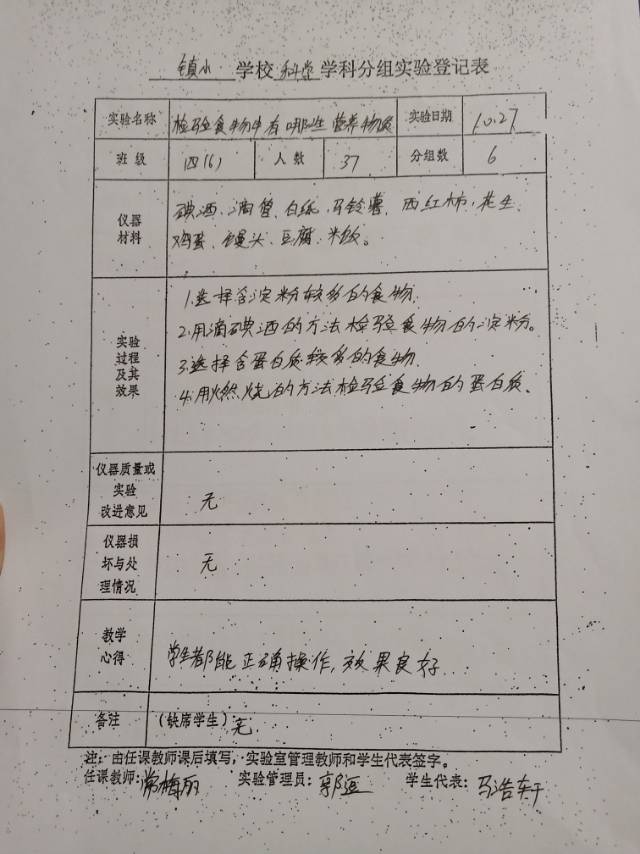 镇小 学校 科学 学科分组实验登记表
实验名称 检验食物中有哪些营养物质 实验日期 10.27
班 级 四(6) 人 数 37 分组数 6
仪器
材料
碘酒、滴管、白纸、马铃薯、西红柿、花生
鸡蛋、馒头、豆腐、米饭。
实验
过程
及其
效果
1.选择含淀粉较多的食物.
2.用滴碘酒的方法检验食物的淀粉。
3.选择含蛋白质较多的食物.
4.用燃烧的方法检验食物的蛋白质.
仪器质量或
实验
改进意见
无
仪器损
坏与处
理情况
无
教学
心得
学生都能正确操作,效果良好
备注 (缺席学生)无
注:由任课教师课后填写,实验室管理教师和学生代表签字。
任课教师:常梅丽 实验管理员:郭 学生代表:马浩轩